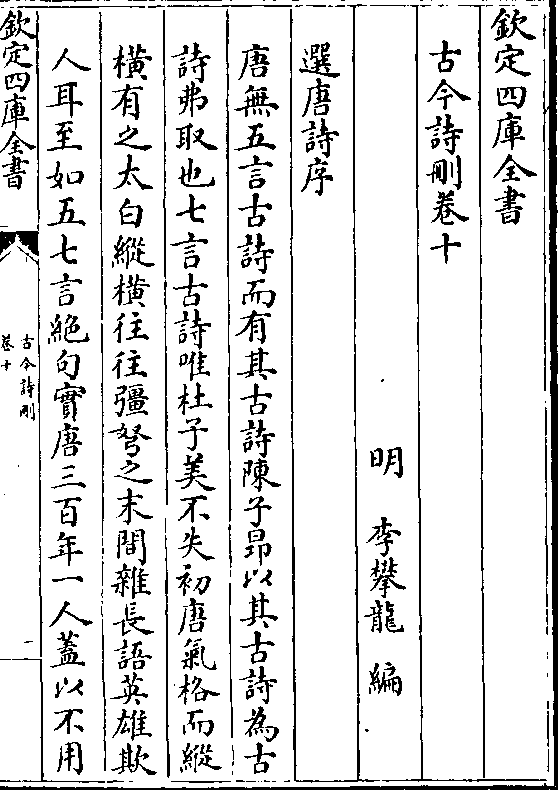 欽定四庫全書
古今詩刪卷十
明 李攀龍 編
選唐詩序
唐無五言古詩而有其古詩陳子昂以其古詩為古
詩弗取也七言古詩唯杜子美不失初唐氣格而縱
橫有之太白縱橫往往彊弩之末間雜長語英雄欺
人耳至如五七言絶句實唐三百年一人蓋以不用
欽定四庫全書
古今詩刪
卷十
一